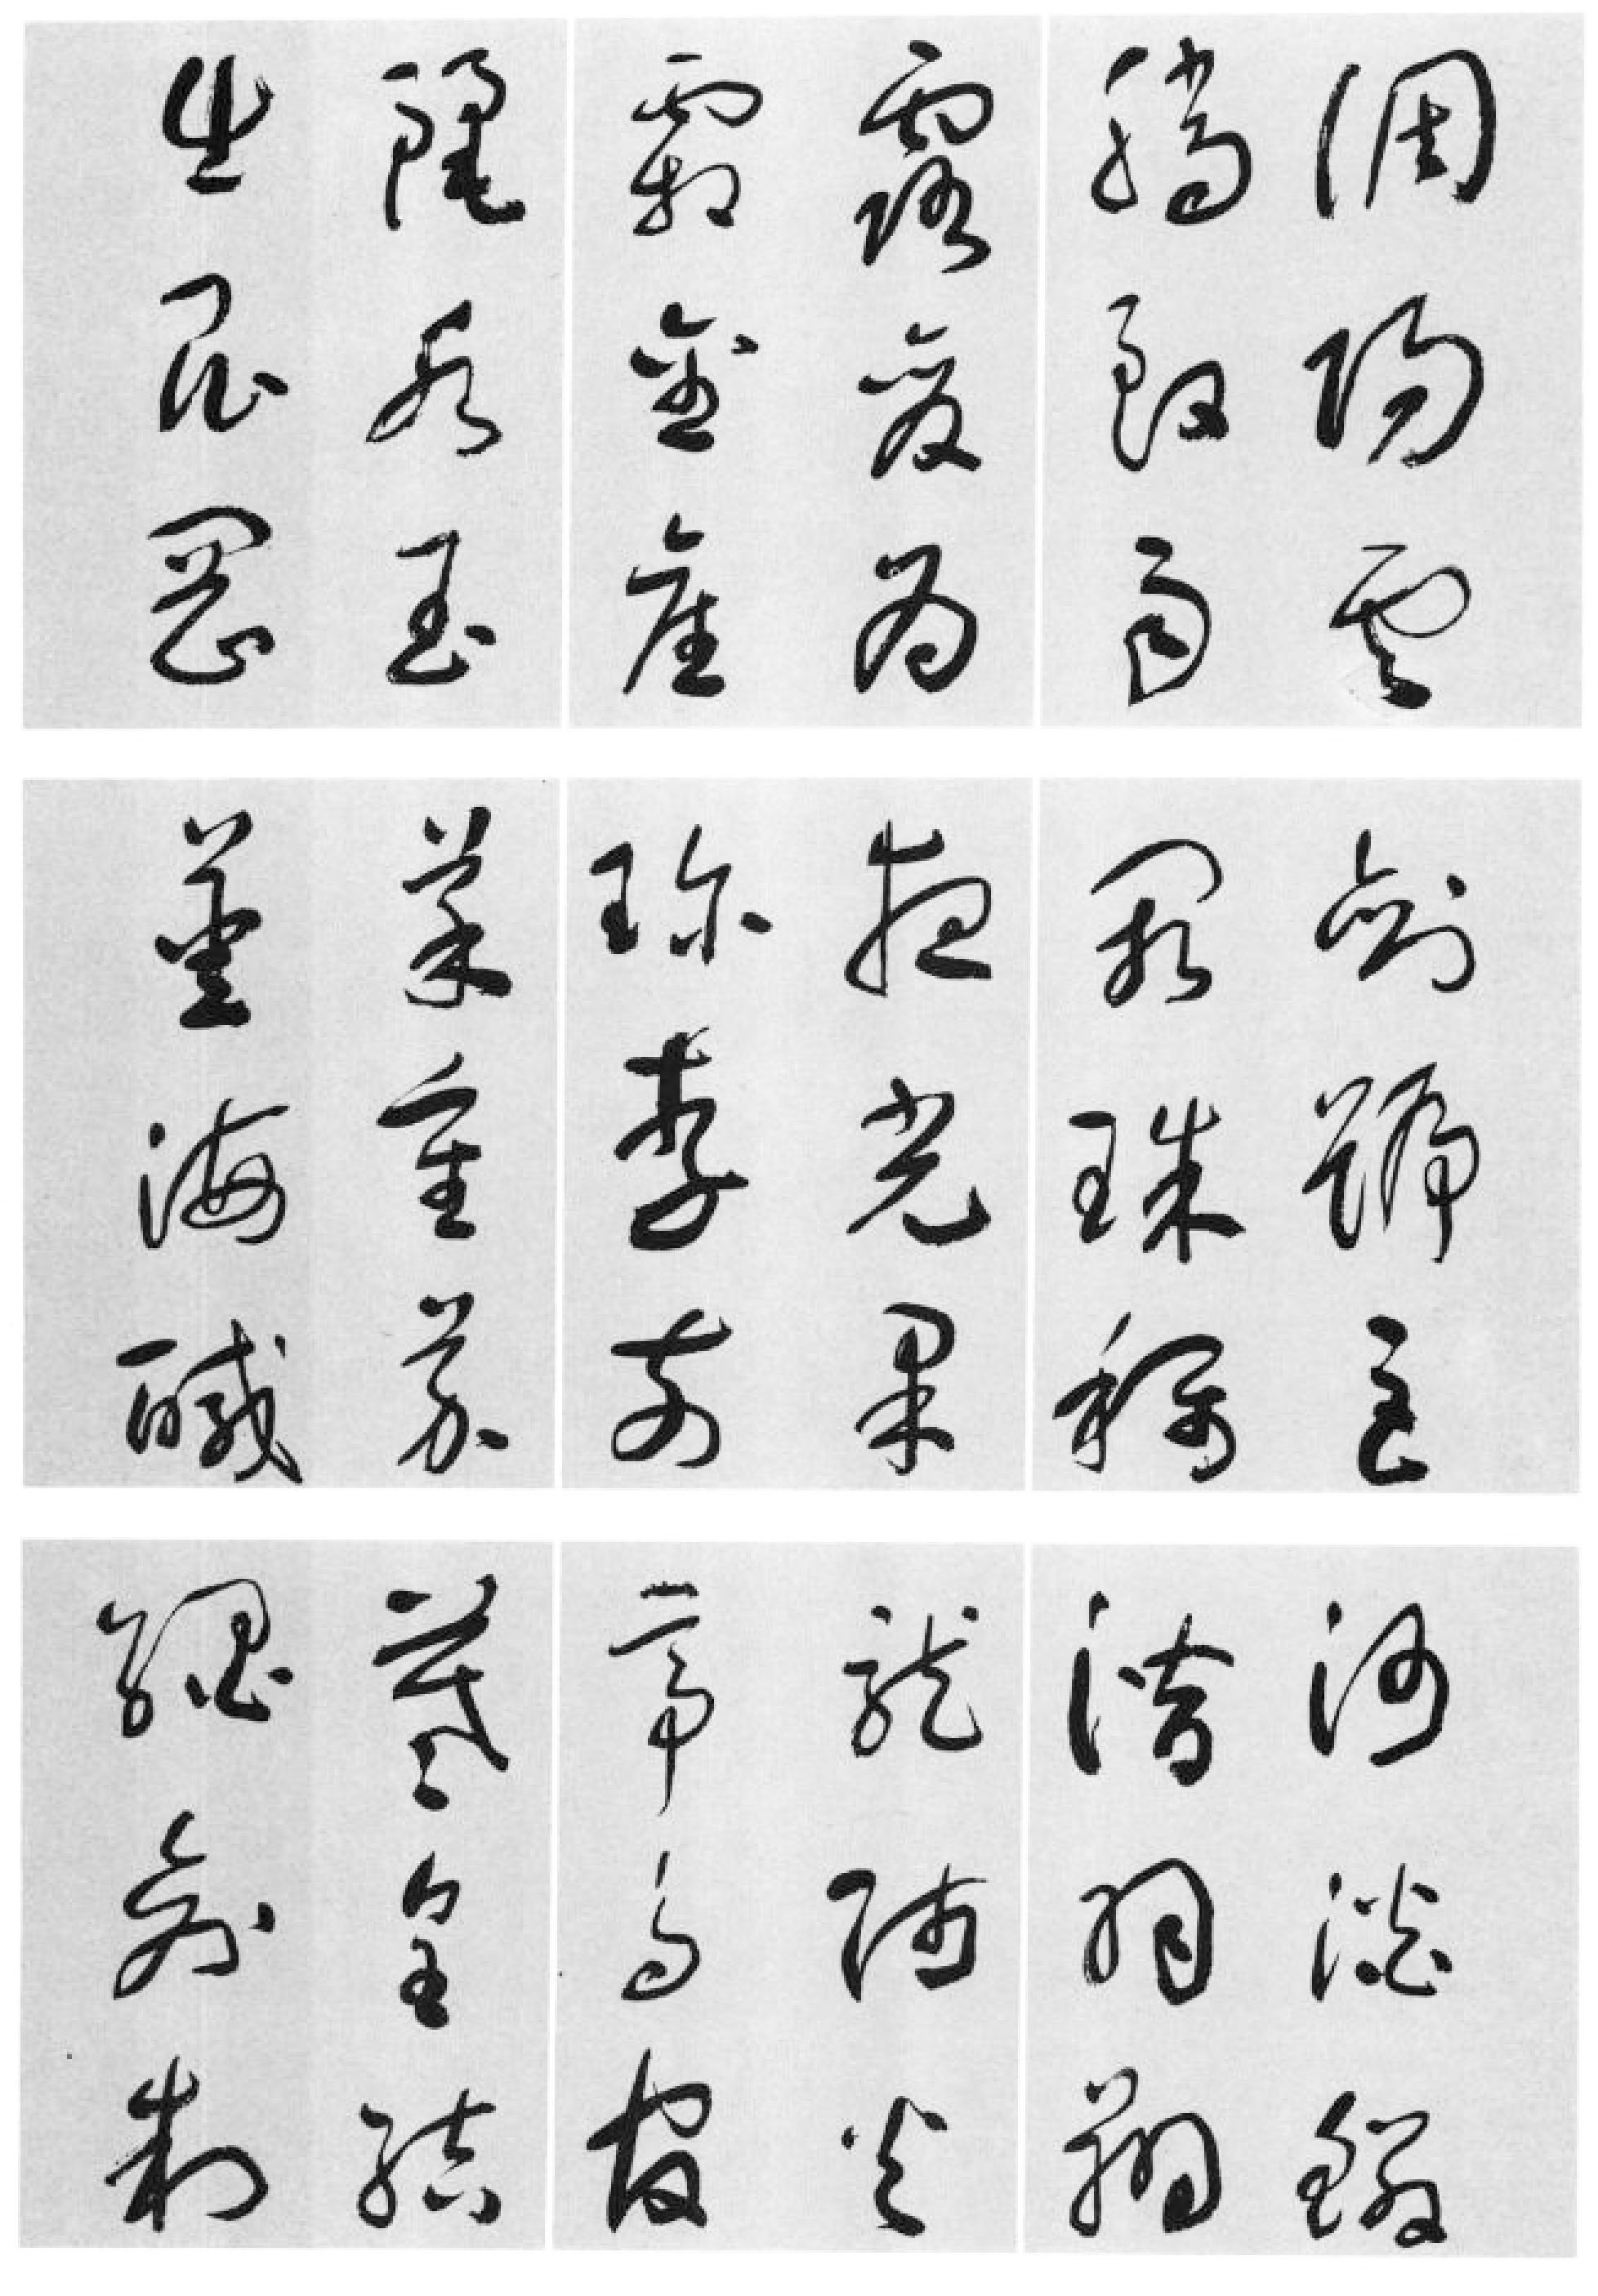 調陽雲
騰致雨
露爰為
霜金產
水玉
生昆岡
劍號巨
闕珠稱
夜光果
珍李柰
菜重芥
薑海鹹
河淡鱗
潛羽翔
龍師火
帝鳥
皇結
繩制